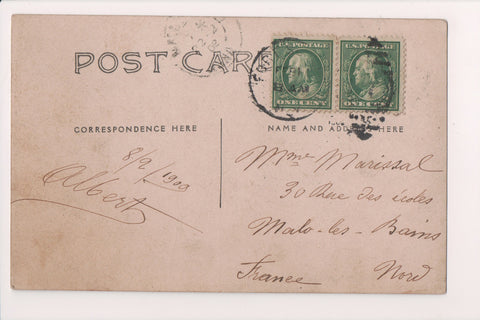 POST CARD
U.S. POSTAGE
ONE CENT
U.S. POSTAGE
ONE CENT
CORRESPONDENCE HERE
NAME AND ADDRESS HERE
8/9 1909
Albert
Mme Marissal
30 Rue des écoles
Malo-les-Bains
France Nord